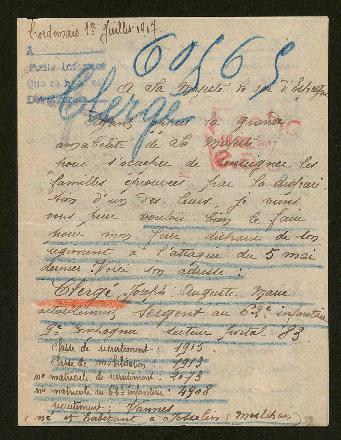 Cordemais 1er Juillet 1917
60565
Clergé
A Sa Majesté le roi d'Espagne
Ayant appris la grande
amabilité de Sa Majesté
pour s'occuper de renseigner les
familles éprouvées par la dispari-
tion d'un des leurs, je viens
vous prier vouloir bien le faire
pour mon frère disparu de son
régiment à l'attaque du 5 mai
dernier. Voici son adresse :
Clergé Joseph Auguste Marie
actuellement Sergent au 62e infanterie
9e Compagnie secteur postal 83
Classe de recrutement : 1915
Classe de mobilisation 1913
no matricule de recrutement :
no matricule au 62e infanterie : 4908
recrutement : Vannes
(né et habitant à Josselin (Morbihan)